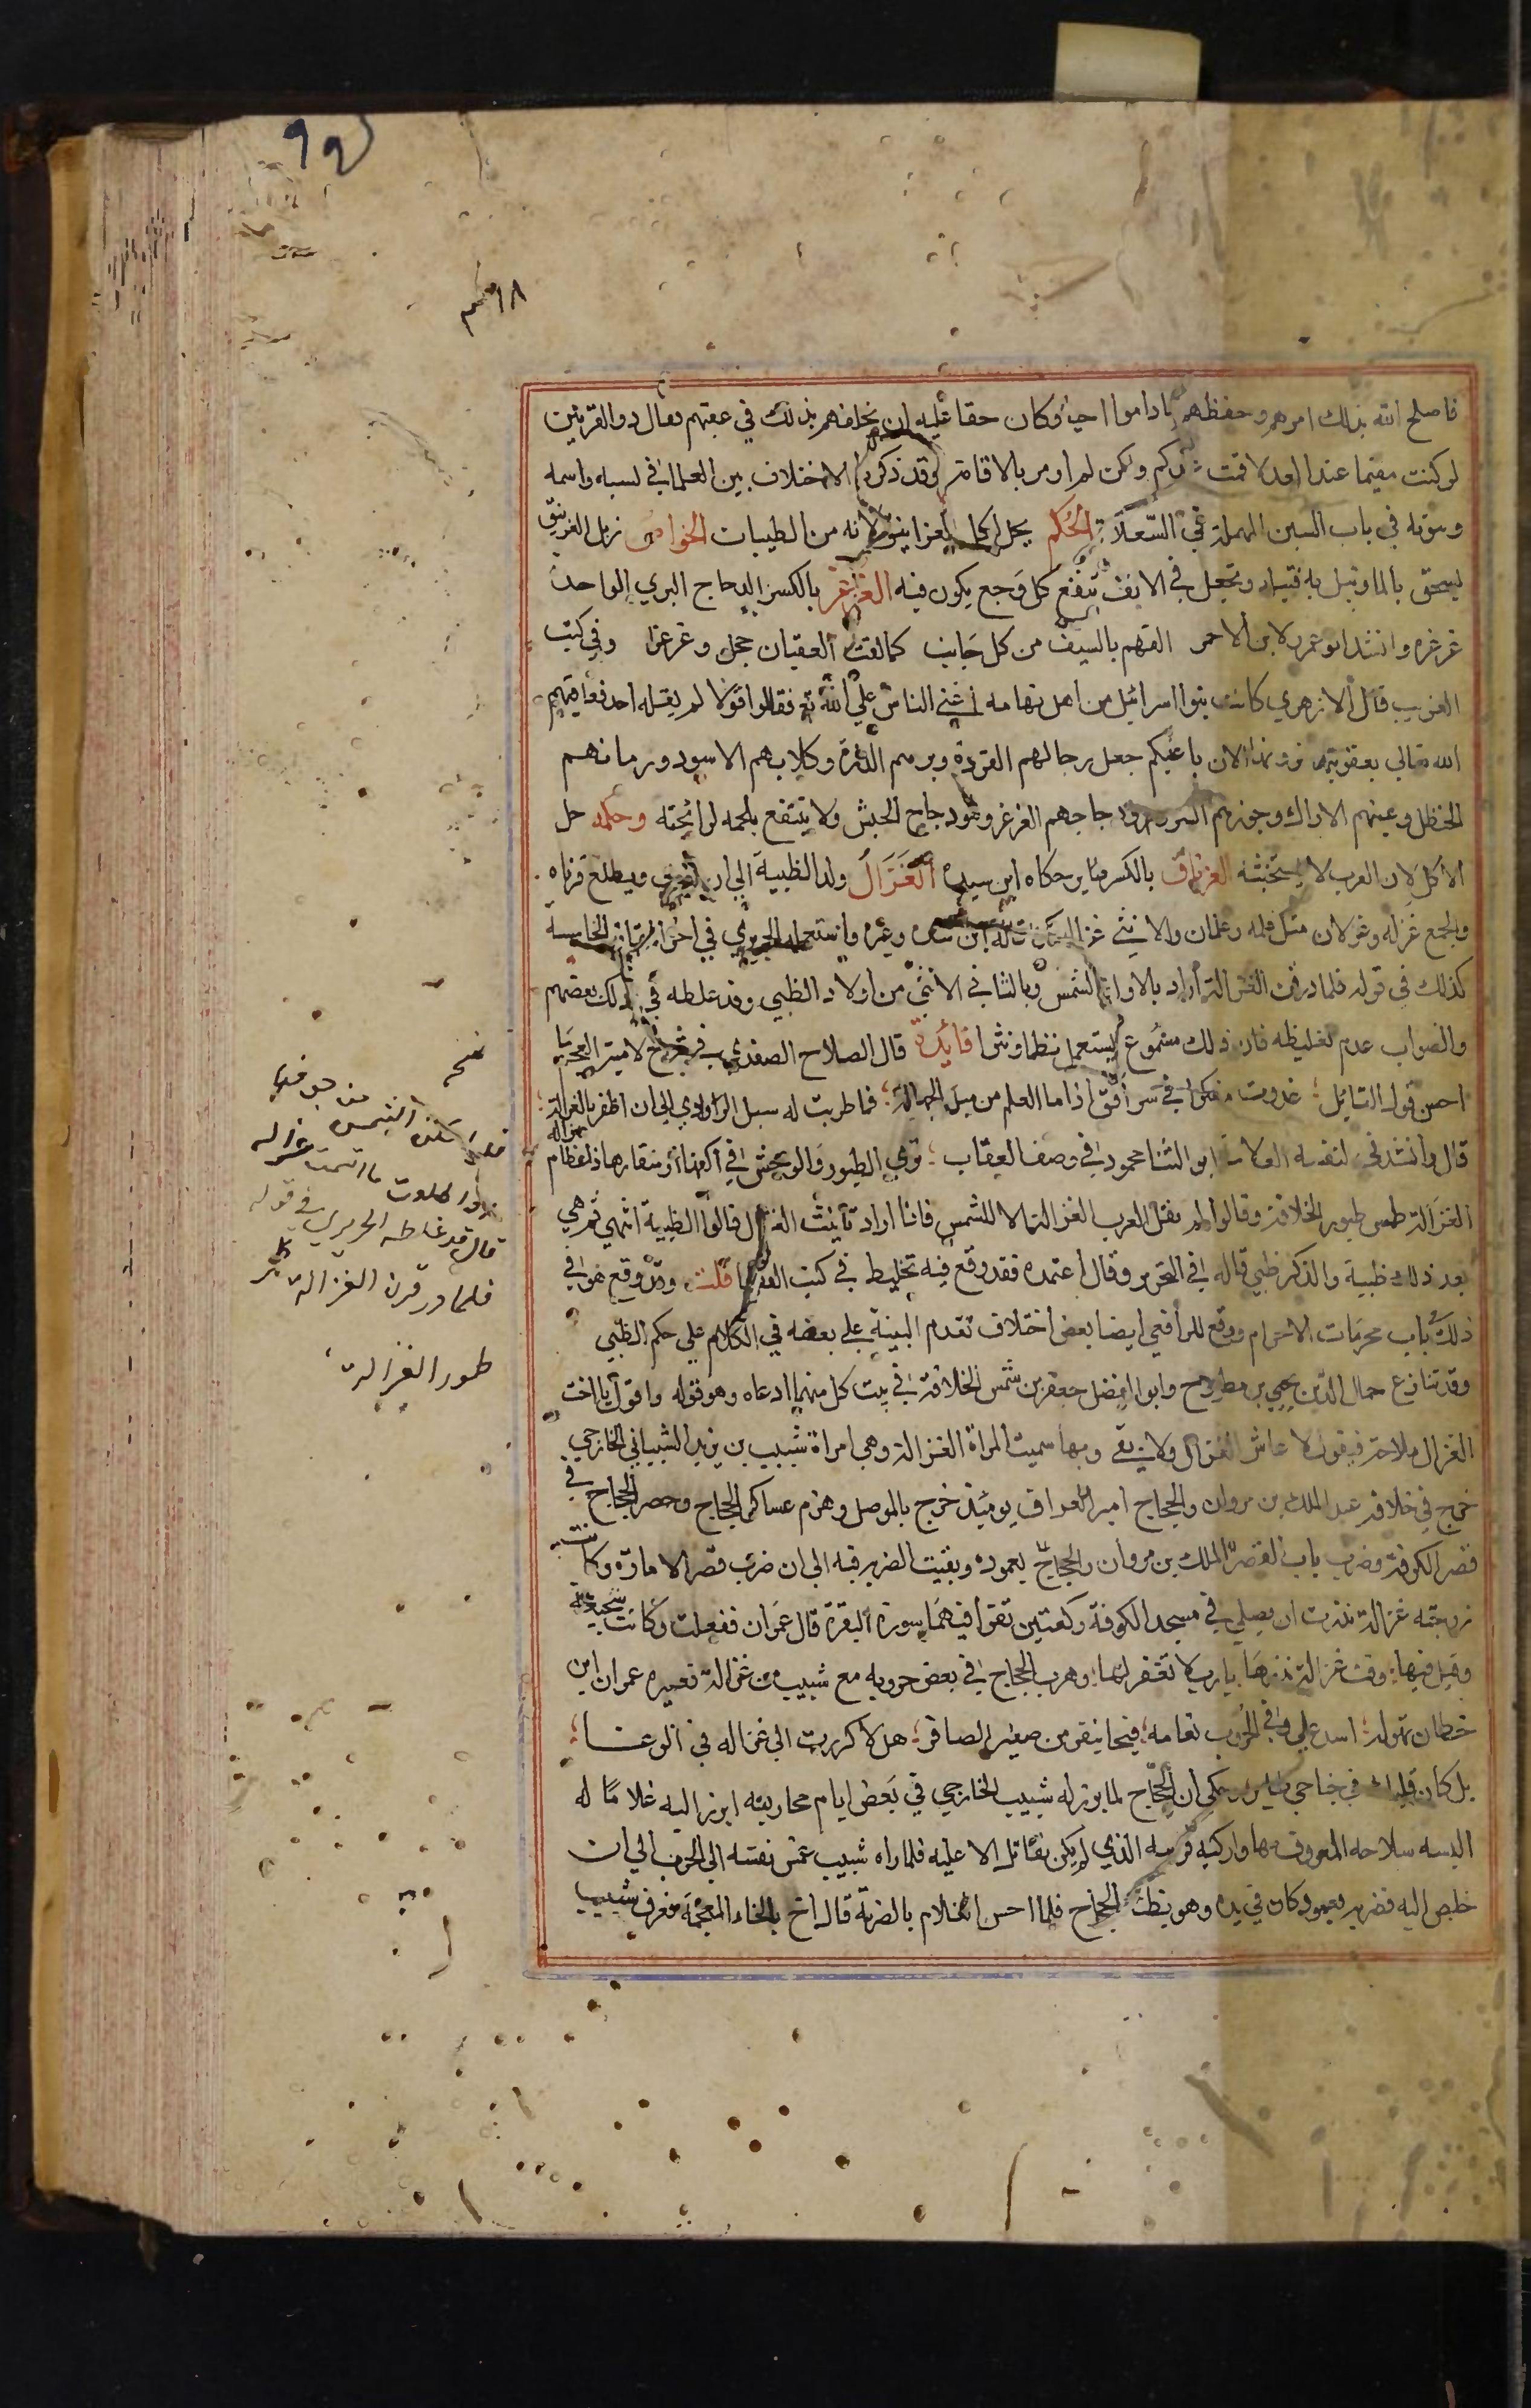 ٩٢
فاصلح الله بذلك امرهم وحفظهم ما داموا احيا وكان حقا عليه ان يخلفهم بذلك في عقبهم فقال ذو القرنين
لو كنت مقيما عند احد لاقمت عندكم ولكن لم اومر بالاقامة وقد ذكرنا الاختلاف بين العلما في نسبه واسمه
في باب السين المهملة في السعلاة الحكم يحل اكل الغرانيق لانه من الطيبات الخواص زبل الغرنيق
يسحق بالما وتبل به فتيله وتجعل في الانف ينفع كل وجع يكون فيه الغرغر بالكسر الدجاج البري الواحدة
غرغره وانشد ابو عمر لابن الاحمر الفهم بالسيف من كل جانب كما لفت العقبان حجل وغرغرا وفي كتب
الغريب قال الازهري كانت بنوا اسرائيل من اهل تهامه الناس علي الله تع فقالوا قولا لم يقله احد فعاقبهم
الله تعالي بعقوبة الان باعينكم جعل رجالهم القردة وبرهم الذرة وكلابهم الاسود ورمانهم
الحنظل وعنبهم الاراك وجوزهم السرو ودجاجهم الغرغر وهو دجاج الحبش ولا ينتفع بلحمه لرائحته وحكمه حل
الاكل لان العرب لا تستخبثه الغرناق بالكسر طاير حكاه ابن سيده الغزال ولد الظبية الي ان يقوي ويطلع قرناه
والجمع غزله وغزلان مثل غلمه وغلمان والانثي غزالة قاله ابن سيده وغيره واستعمله الحريري في اخر المقامة الخامسة
كذلك في قوله فلما در قرن الغزالة اراد بالاول الشمس وبالثاني الانثي من اولاد الظبي وقد غلطه في ذلك بعضهم
والصواب عدم تغليظه فان ذلك مسموع يستعمل نظما ونثرا فائدة قال الصلاح الصفدي في شرح لامية العجم ما
احسن قول القائل غدوت مفكرا في سر افق اذا ما العلم من مبل الجهالة فما طويت له سبل الراوي الي ان اظفر بالغزالة
قال وانشدني لنفسه العلامة ابو الثنا محمود في وصف العقاب تري الطيور والوحش في اكفها ومنقارها ذا عظام
الغزالة طمس طيور الخلافة وقالوا لم تقل العرب الغزالة الا للشمس فاذا اراد تانيث الغزال قالوا الظبية انتهي ثم هي
بعد ذلك ظبية والذكر ظبي قاله في التحرير وقال اعتمده فقد وقع فيه تخليط في كتب الفقها قلت وقد وقع هو في
ذلك باب محرمات الاحرام ووقع للرافعي ايضا بعض اختلاف تقدم البينة علي بعضه في الكلام علي حكم الظبي
وقد تنازع جمال الدين يحيي بن مطروح وابوا الفضل جعفر بن شمس الخلافة في بيت كل منهما ادعاه وهو قوله واقول يا اخت
الغزال ملاحة فيقول لا عاش الغزال ولا بقي وبها سميت المراة الغزالة وهي امراة شبيب بن يزيد الشيباني الخارجي
خرج في خلافة عبد الملك بن مروان والحجاج امير العراق يومئذ خرج بالموصل وهزم عساكر الحجاج وحصر الحجاج في
قصر الكوفة وضرب باب القصر الملك بن مروان والحجاج بعموده وبقيت الضربه فيه الي ان خرب قصر الامارة وكانت
زوجته غزالة نذرت ان يصلي في مسجد الكوفة ركعتين تقرا فيهما سورة البقرة وال عمران ففعلت وكانت شجيعة
وقيل فيها وفت غزالة نذرها يا رب لا تغفر لها وهرب الحجاج في بعض حروبه مع شبيب من غزالة فعيره عمران ابن
حطان بقوله اسد علي وفي الحروب نعامه فتخا تنفر من صفير الصافر هلا كررت الي غزاله في الوغا
بل كان قلبك في جناحي طاير وحكي ان الحجاج لما برز له شبيب الخارجي في بعض ايام محاربته ابرز اليه غلاما له
البسه سلاحه المعروف بها واركبه فرسه الذي لم يكن يقاتل الا عليه فلما راه شبيب غمس نفسه الي الحرب الي ان
خلص اليه فضربه بعمود كان في يده وهو يظنه الحجاج فلما احس الغلام بالضربة قال اخ بالخاء المعجمة فعرف شبيب
قال وقد غلطه الحريري في قوله
فلما در قرن الغزالة
طمور الغزالة